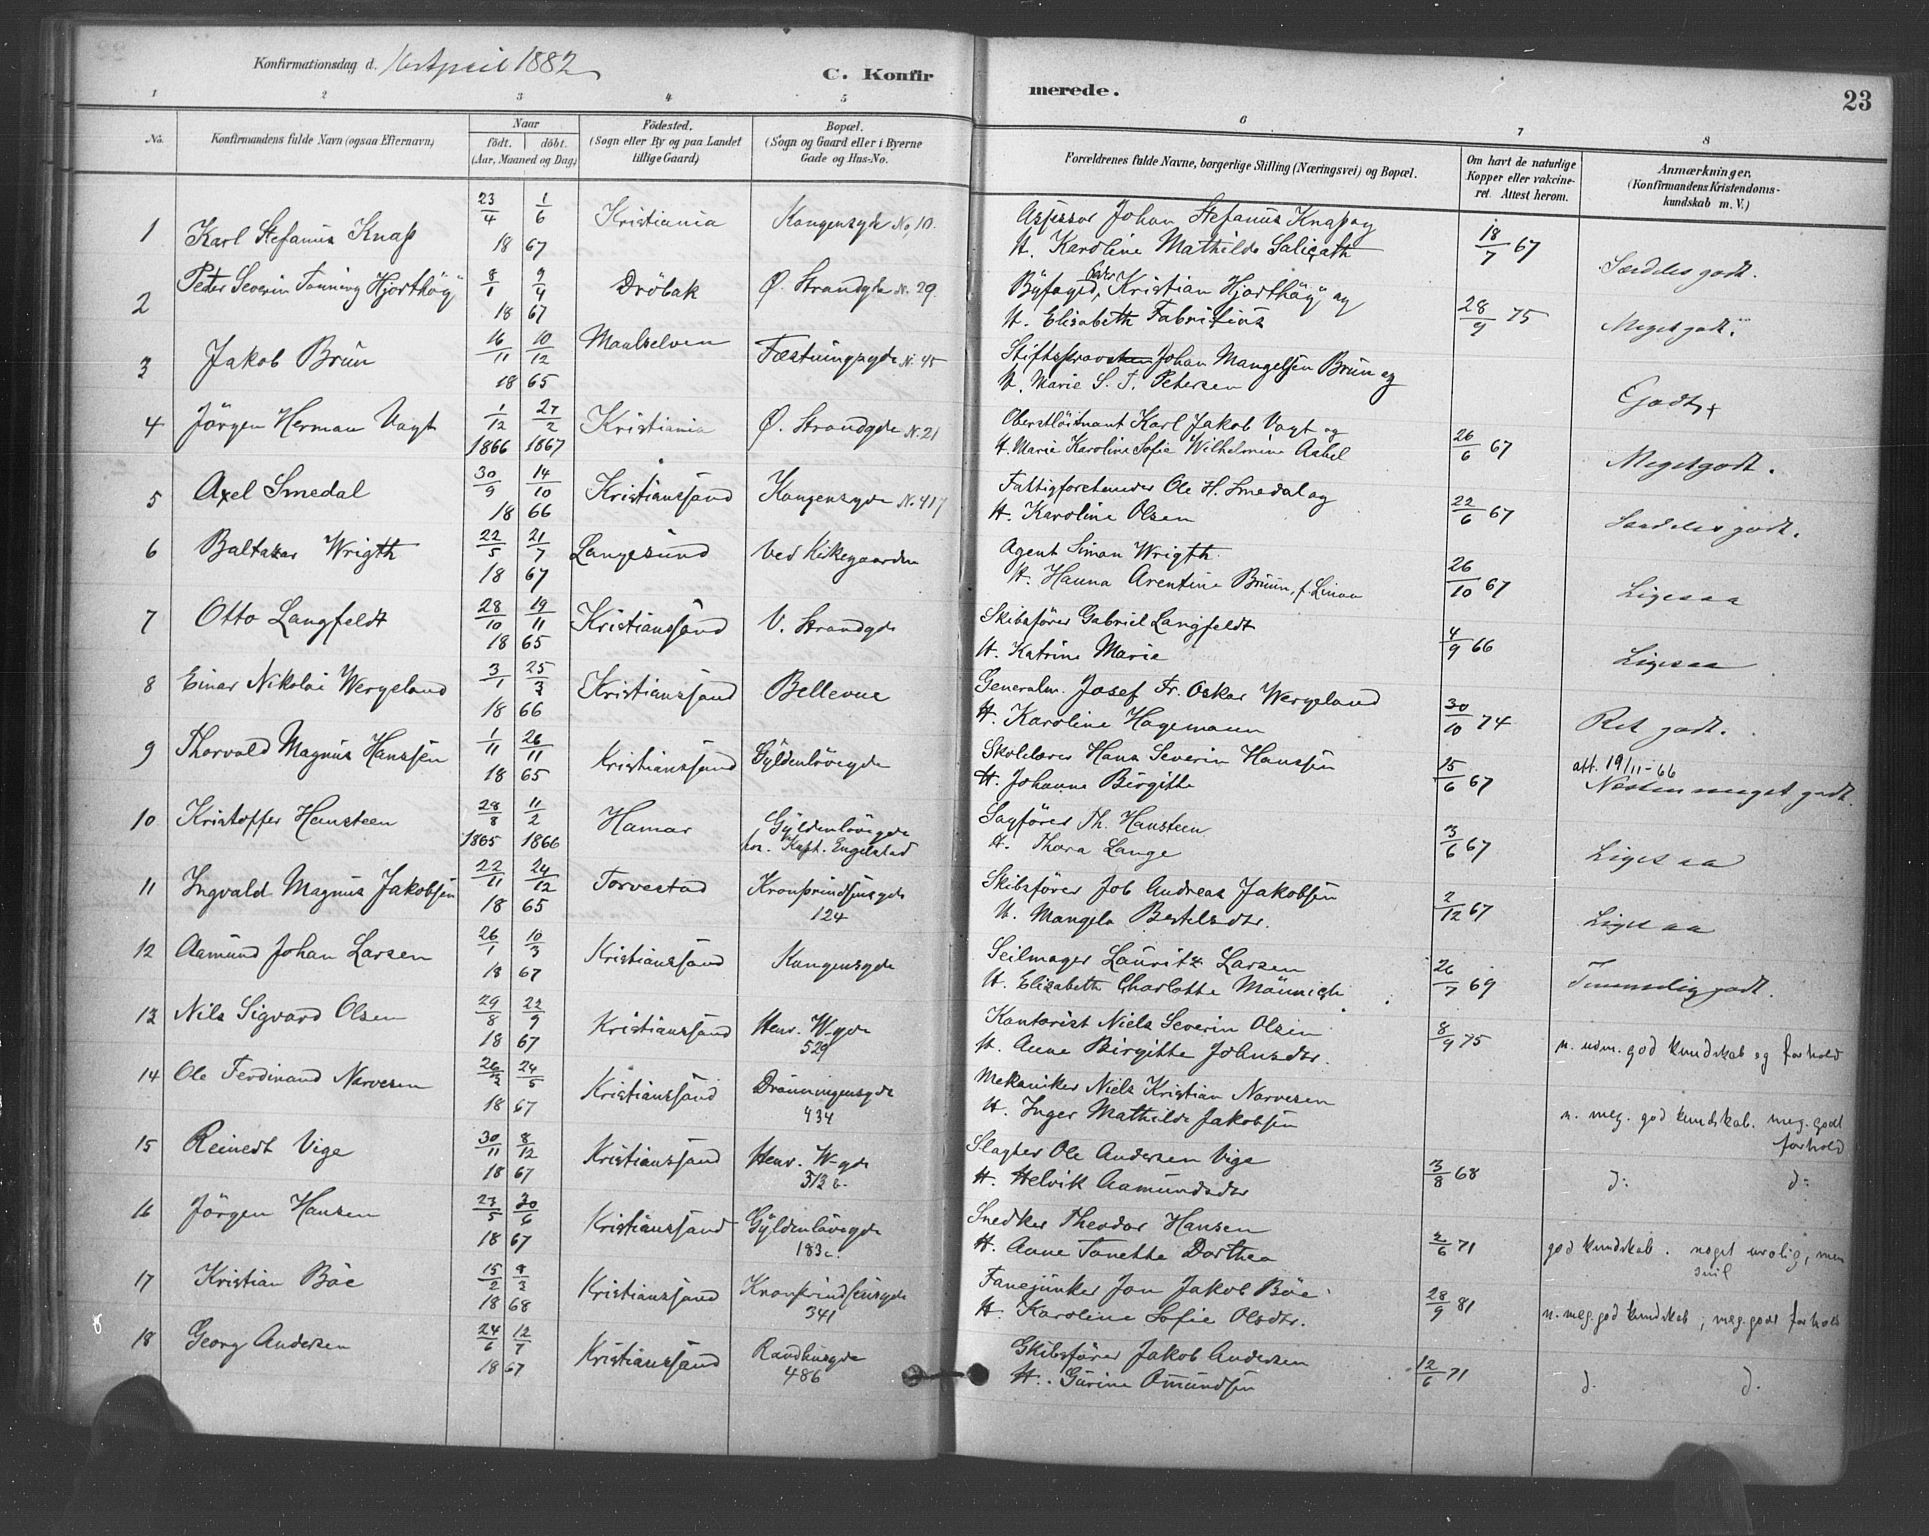 Konfirmationsdag d. 16 April 1882
C. Konfirmerede.
23
1 2 3 4 5 6 7 8
No. Konfirmandens fulde Navn (ogsaa Efternavn) Naar født. døbt. (Aar, Maaned og Dag) Fødested. (Sogn eller By og paa Landet tillige Gaard) Bopæl. (Sogn og Gaard eller i Byerne Gade og Hus-No. Forældrenes fulde Navne, borgerlige Stilling (Næringsvei) og Bopæl. Om havt de naturlige Kopper eller vakcineret. Attest herom. Anmærkninger. (Konfirmandens Kristendomskundskab m. V.)
1 Karl Stefanus Knap 23/4 1867 1/6 Kristiania Kongensgde No 10. Assessor Johan Stefanus Knap og H. Karoline Mathilde Salicath 18/7 67 Særdeles godt.
2 Peter Severin Tønning Hjorthöy 8/1 1867 9/4 Dröbak Ø. Strandgde N. 29. Byfoged Kristian Hjorthöy og H. Elisabeth Fabritius 28/9 75 Meget godt.
3 Jakob Brün 16/11 1865 10/12 Maalselven Fæstningsgde N. 45 Stiftsprovsten Johan Mangelsen Brün og H. Marie S. T. Petersen Godt
4 Jörgen Herman Vogt 1/12 1866 27/2 1867 Kristiania Ø. Strandgde N. 21 Oberstlöitnant Karl Jakob Vogt og H. Marie Karoline Sofie Wilhelmine Aabel 26/6 67 Meget godt.
5 Axel Smedal 30/9 1866 14/10 Kristianssand Kongensgde N. 417 Fattigforstander Ole H. Smedal og H. Karoline Olsen 22/6 67 Særdeles godt.
6 Baltazar Wrigth 22/5 1867 21/7 Langesund Ved Kirkegaarden Agent Simon Wrigth. H. Hanna Arentine Bruun, f. 26/10 67 Ligesaa
7 Otto Langfeldt 28/10 1865 19/11 Kristianssand V. Strandgde Skibsfører Gabriel Langfeldt H. Katrine Marie 4/9 66 Ligesaa
8 Einar Nikolai Wergeland 3/1 1866 25/3 Kristianssand Bellevue Generalm. Josef Fr. Oskar Wergeland H. Karoline Hagemann 30/10 74 Ret godt.
9 Thorvald Magnus Hanssen 1/11 1865 26/11 Kristianssand Gyldenlövegde Skolelærer Hans Severin Hanssen H. Johanne Birgitte 15/6 67 att. 19/11-66 Næsten meget godt.
10 Kristoffer Hansteen 28/8 1865 11/2 1866 Hamar Gyldenlövegde hos Kapt. Engelstad Sagfører Th. Hansteen H. Thora Lange 3/6 67 Ligesaa
11 Ingvald Magnus Jakobsen 22/11 1865 24/12 Torvestad Kronprindsensgde 124 Skibsfører Job Andreas Jakobsen H. Mangela Bertelsdtr. 2/12 67 Ligesaa
12 Aamund Johan Larsen 26/1 1867 10/3 Kristianssand Kongensgde Seilmager Lauritz Larsen H. Elizabeth Charlotte Männich 26/7 69 Temmelig godt.
13 Nils Sigvard Olsen 29/8 1867 22/9 Kristianssand Henr. W-gde 529 Kontorist Niels Severin Olsen H. Anne Birgitte Johnsdtr. 8/9 75 n. udm. god kundskab og forhold
14 Ole Ferdinand Narvesen 26/2 1867 24/5 Kristianssand Dronningensgde 434 Mekaniker Niels Kristian Narvesen H. Inger Mathilde Jakobsen n. meg. god kundskab. meg. godt forhold
15 Reinert Vige 30/11 1867 8/12 Kristianssand Henr. W-gde 313 b. Slagter Ole Andersen Vige H. Helvik Aamundsdtr 3/8 68 d: d:
16 Jörgen Hansen 23/5 1867 30/6 Kristianssand Gyldenlövegde 183c. Snedker Theodor Hansen H. Anne Tonette Dorthea 2/6 71 god kundskab. noget urolig, men snil
17 Kristian Böe 15/2 1868 8/3 Kristianssand Kronprindsensgde 341 Fanejunker Jon Jakob Böe H. Karoline Sofie Olsdtr. 28/9 81 n. meg. god kundskab; meg. godt forhold
18 Georg Andersen 24/6 1867 12/7 Kristianssand Raadhusgde 486 Skibsfører Jakob Andersen H. Gurine Omundsen 12/6 71 d. d.